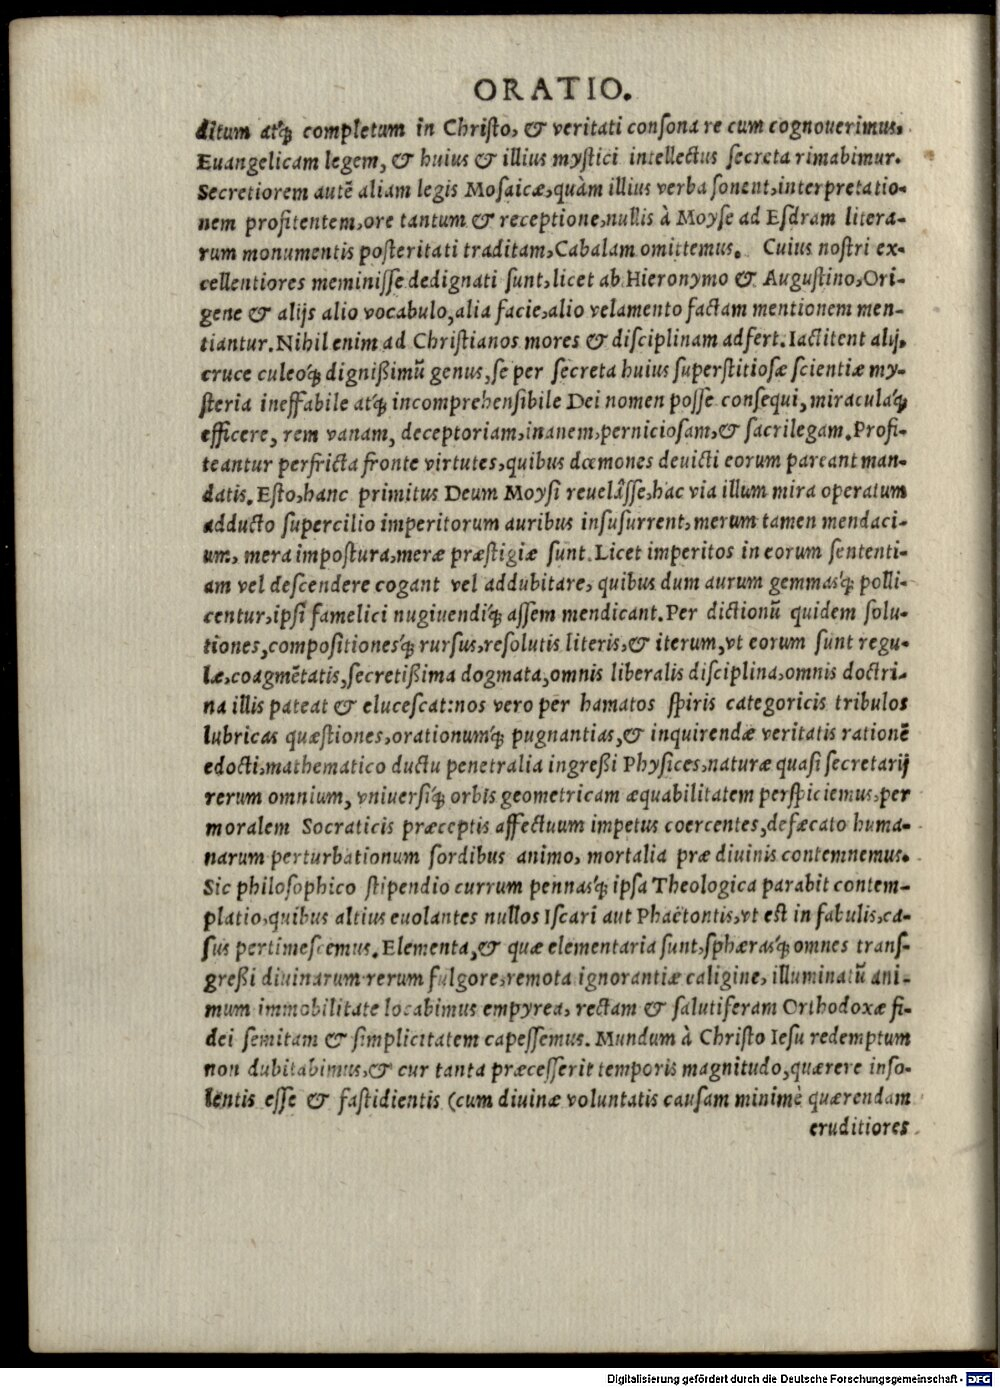 ORATIO.
ditum atq́; completum in Christo, & veritati consona re cum cognouerimus,
Euangelicam legem, & huius & illius mystici intellectus secreta rimabimur.
Secretiorem autē aliam legis Mosaicæ, quàm illius verba sonent, interpretatio-
nem profitentem, ore tantum & receptione, nullis à Moyse ad Esdram litera-
rum monumentis posteritati traditam, Cabalam omittemus. Cuius nostri ex-
cellentiores meminisse dedignati sunt, licet ab Hieronymo & Augustino, Ori-
gene & alijs alio vocabulo, alia facie, alio velamento factam mentionem men-
tiantur. Nihil enim ad Christianos mores & disciplinam adfert. Iactitent alij,
cruce culeoq́; dignißimū genus, se per secreta huius superstitiosæ scientiæ my-
steria ineffabile atq́; incomprehensibile Dei nomen posse consequi, miraculaq́;
efficere, rem vanam, deceptoriam, inanem, perniciosam, & sacrilegam. Profi-
teantur perfricta fronte virtutes, quibus dæmones deuicti eorum pareant man-
datis. Esto, hanc primitus Deum Moysi reuelâsse, hac via illum mira operatum
adducto supercilio imperitorum auribus insusurrent, merum tamen mendaci-
um, mera impostura, meræ præstigiæ sunt. Licet imperitos in eorum sententi-
am vel descendere cogant vel addubitare, quibus dum aurum gemmasq́; polli-
centur, ipsi famelici nugiuendiq́; assem mendicant. Per dictionū quidem solu-
tiones, compositionesq́; rursus, resolutis literis, & iterum, vt eorum sunt regu-
læ, coagmētatis, secretißima dogmata, omnis liberalis disciplina, omnis doctri-
na illis pateat & elucescat: nos vero per hamatos spiris categoricis tribulos
lubricas quæstiones, orationumq́; pugnantias, & inquirendæ veritatis rationē
edocti, mathematico ductu penetralia ingreßi Physices, naturæ quasi secretarij
rerum omnium, vniuersiq́; orbis geometricam æquabilitatem perspiciemus, per
moralem Socraticis præceptis affectuum impetus coercentes, defæcato huma-
narum perturbationum sordibus animo, mortalia præ diuinis contemnemus.
Sic philosophico stipendio currum pennasq́; ipsa Theologica parabit contem-
platio, quibus altius euolantes nullos Iscari aut Phaëtontis, vt est in fabulis, ca-
sus pertimescemus. Elementa, & quæ elementaria sunt, sphærasq́; omnes trans-
greßi diuinarum rerum fulgore, remota ignorantiæ caligine, illuminatū ani-
mum immobilitate locabimus empyrea, rectam & salutiferam Orthodoxæ fi-
dei semitam & simplicitatem capessemus. Mundum à Christo Iesu redemptum
non dubitabimus, & cur tanta præcesserit temporis magnitudo, quærere inso-
lentis esse & fastidientis (cum diuinæ voluntatis causam minimè quærendam
eruditiores
Digitalisierung gefördert durch die Deutsche Forschungsgemeinschaft - DFG